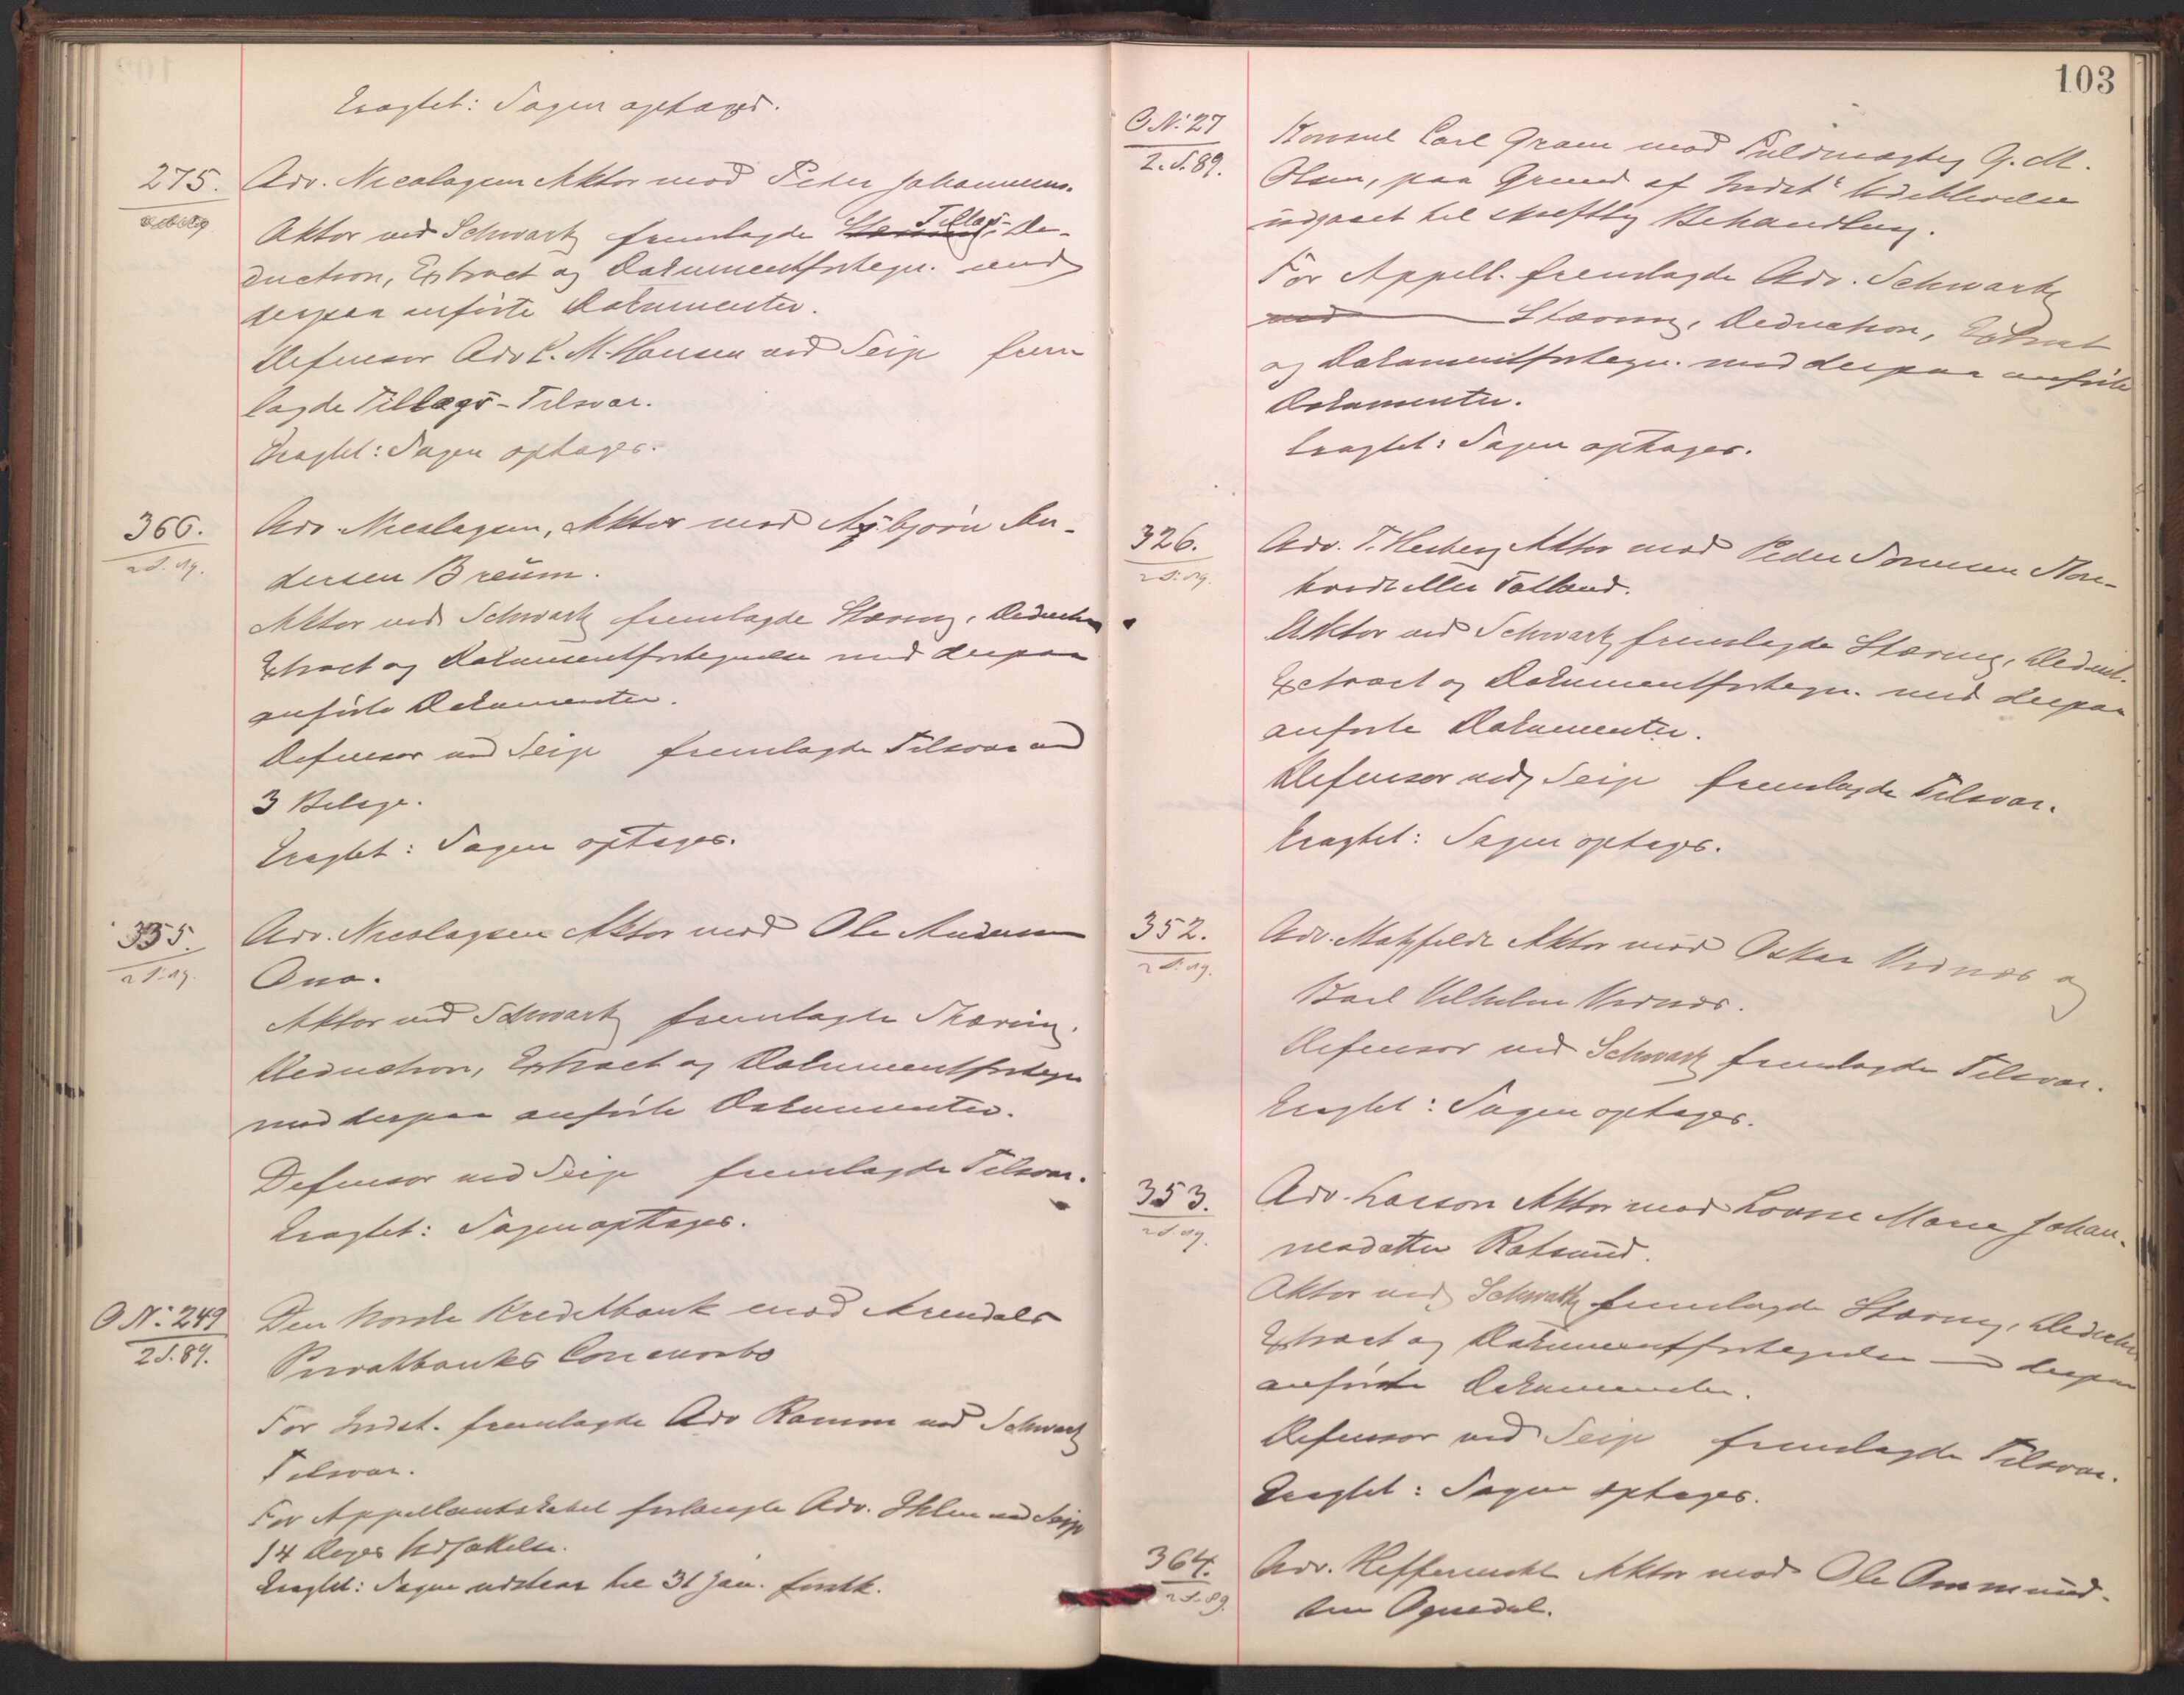 Eragtet: Sagen optages.
275. Adv. Nicolaysen Aktor mod Peder Johannesen.
Aktor ved Schwartz fremlagde Tillægs-De-
duction, Extract og Dokumentfortegn. med
derpaa anførte Dokumenter.
Defensor Adv. C. M. Hansen ved Seip frem
lagde Tillægs-Tilsvar.
Eragtet: Sagen optages.
366. Adv. Nicolaysen, Aktor mod Asbjørn An-
2 S. 89. dersen Breum.
Aktor ved Schwartz fremlagde Stævning, Deduction
Extract og Dokumentfortegnelse med derpaa
anførte Dokumenter.
Defensor ved Seip fremlagde Tilsvar med
3 Bilage.
Eragtet: Sagen optages.
355. Adv. Nicolaysen Aktor mod Ole Andersen
2 S. 89. Ono.
Aktor ved Schwartz fremlagde Stævning,
Deduction, Extract og Dokumentfortegn
med derpaa anførte Dokumenter.
Defensor ved Seip fremlagde Tilsvar.
Eragtet: Sagen optages.
O Nº 249 Den Norske Kreditbank mod Arendals
2 S. 89. Privatbanks Concursbo
For Indst. fremlagde Adv Ramm ved Schwartz
Tilsvar.
For Appellantskabet forlangte Adv. Ihlen ved Seip
14 Dages Udsættelse.
Eragtet: Sagen udstaar til 31 Jan. førstk.
103
O Nº 27 Konsul Carl Gram mod Fuldmægtig G. M.
2. S. 89. Olsen, paa Grund af Indst.s Udeblivelse
udgaaet til skriftlig Behandling.
For Appell. fremlagde Adv. Schwartz
Stævning, Deduction, Extract
og Dokumentfortegn. med derpaa anførte
Dokumenter.
Eragtet: Sagen optages.
326. Adv. T. Heiberg Aktor mod Peder Sørensen
2 S. 89. eller Tolland.
Aktor ved Schwartz fremlagde Stævning, Deduct.
Extract og Dokumentfortegn. med derpaa
anførte Dokumenter.
Defensor ved Seip fremlagde Tilsvar.
Eragtet: Sagen optages.
352. Adv. Matzfeldt Aktor mod Oskar Vidnes og
2 S. 89. Karl Vilhelm Vidnes.
Defensor ved Schwartz fremlagde Tilsvar.
Eragtet: Sagen optages.
353. Adv. Larson Aktor mod Lovise Marie Johan-
2 S. 89. nesdatter Ratsund.
Aktor ved Schwartz fremlagde Stævning, Deduction
Extract og Dokumentfortegnelse med derpaa
anførte Dokumenter.
Defensor ved Seip fremlagde Tilsvar.
Eragtet: Sagen optages.
364. Adv. Heffermehl Aktor mod Ole Ommund-
2 S. 89. sen Ognedal.